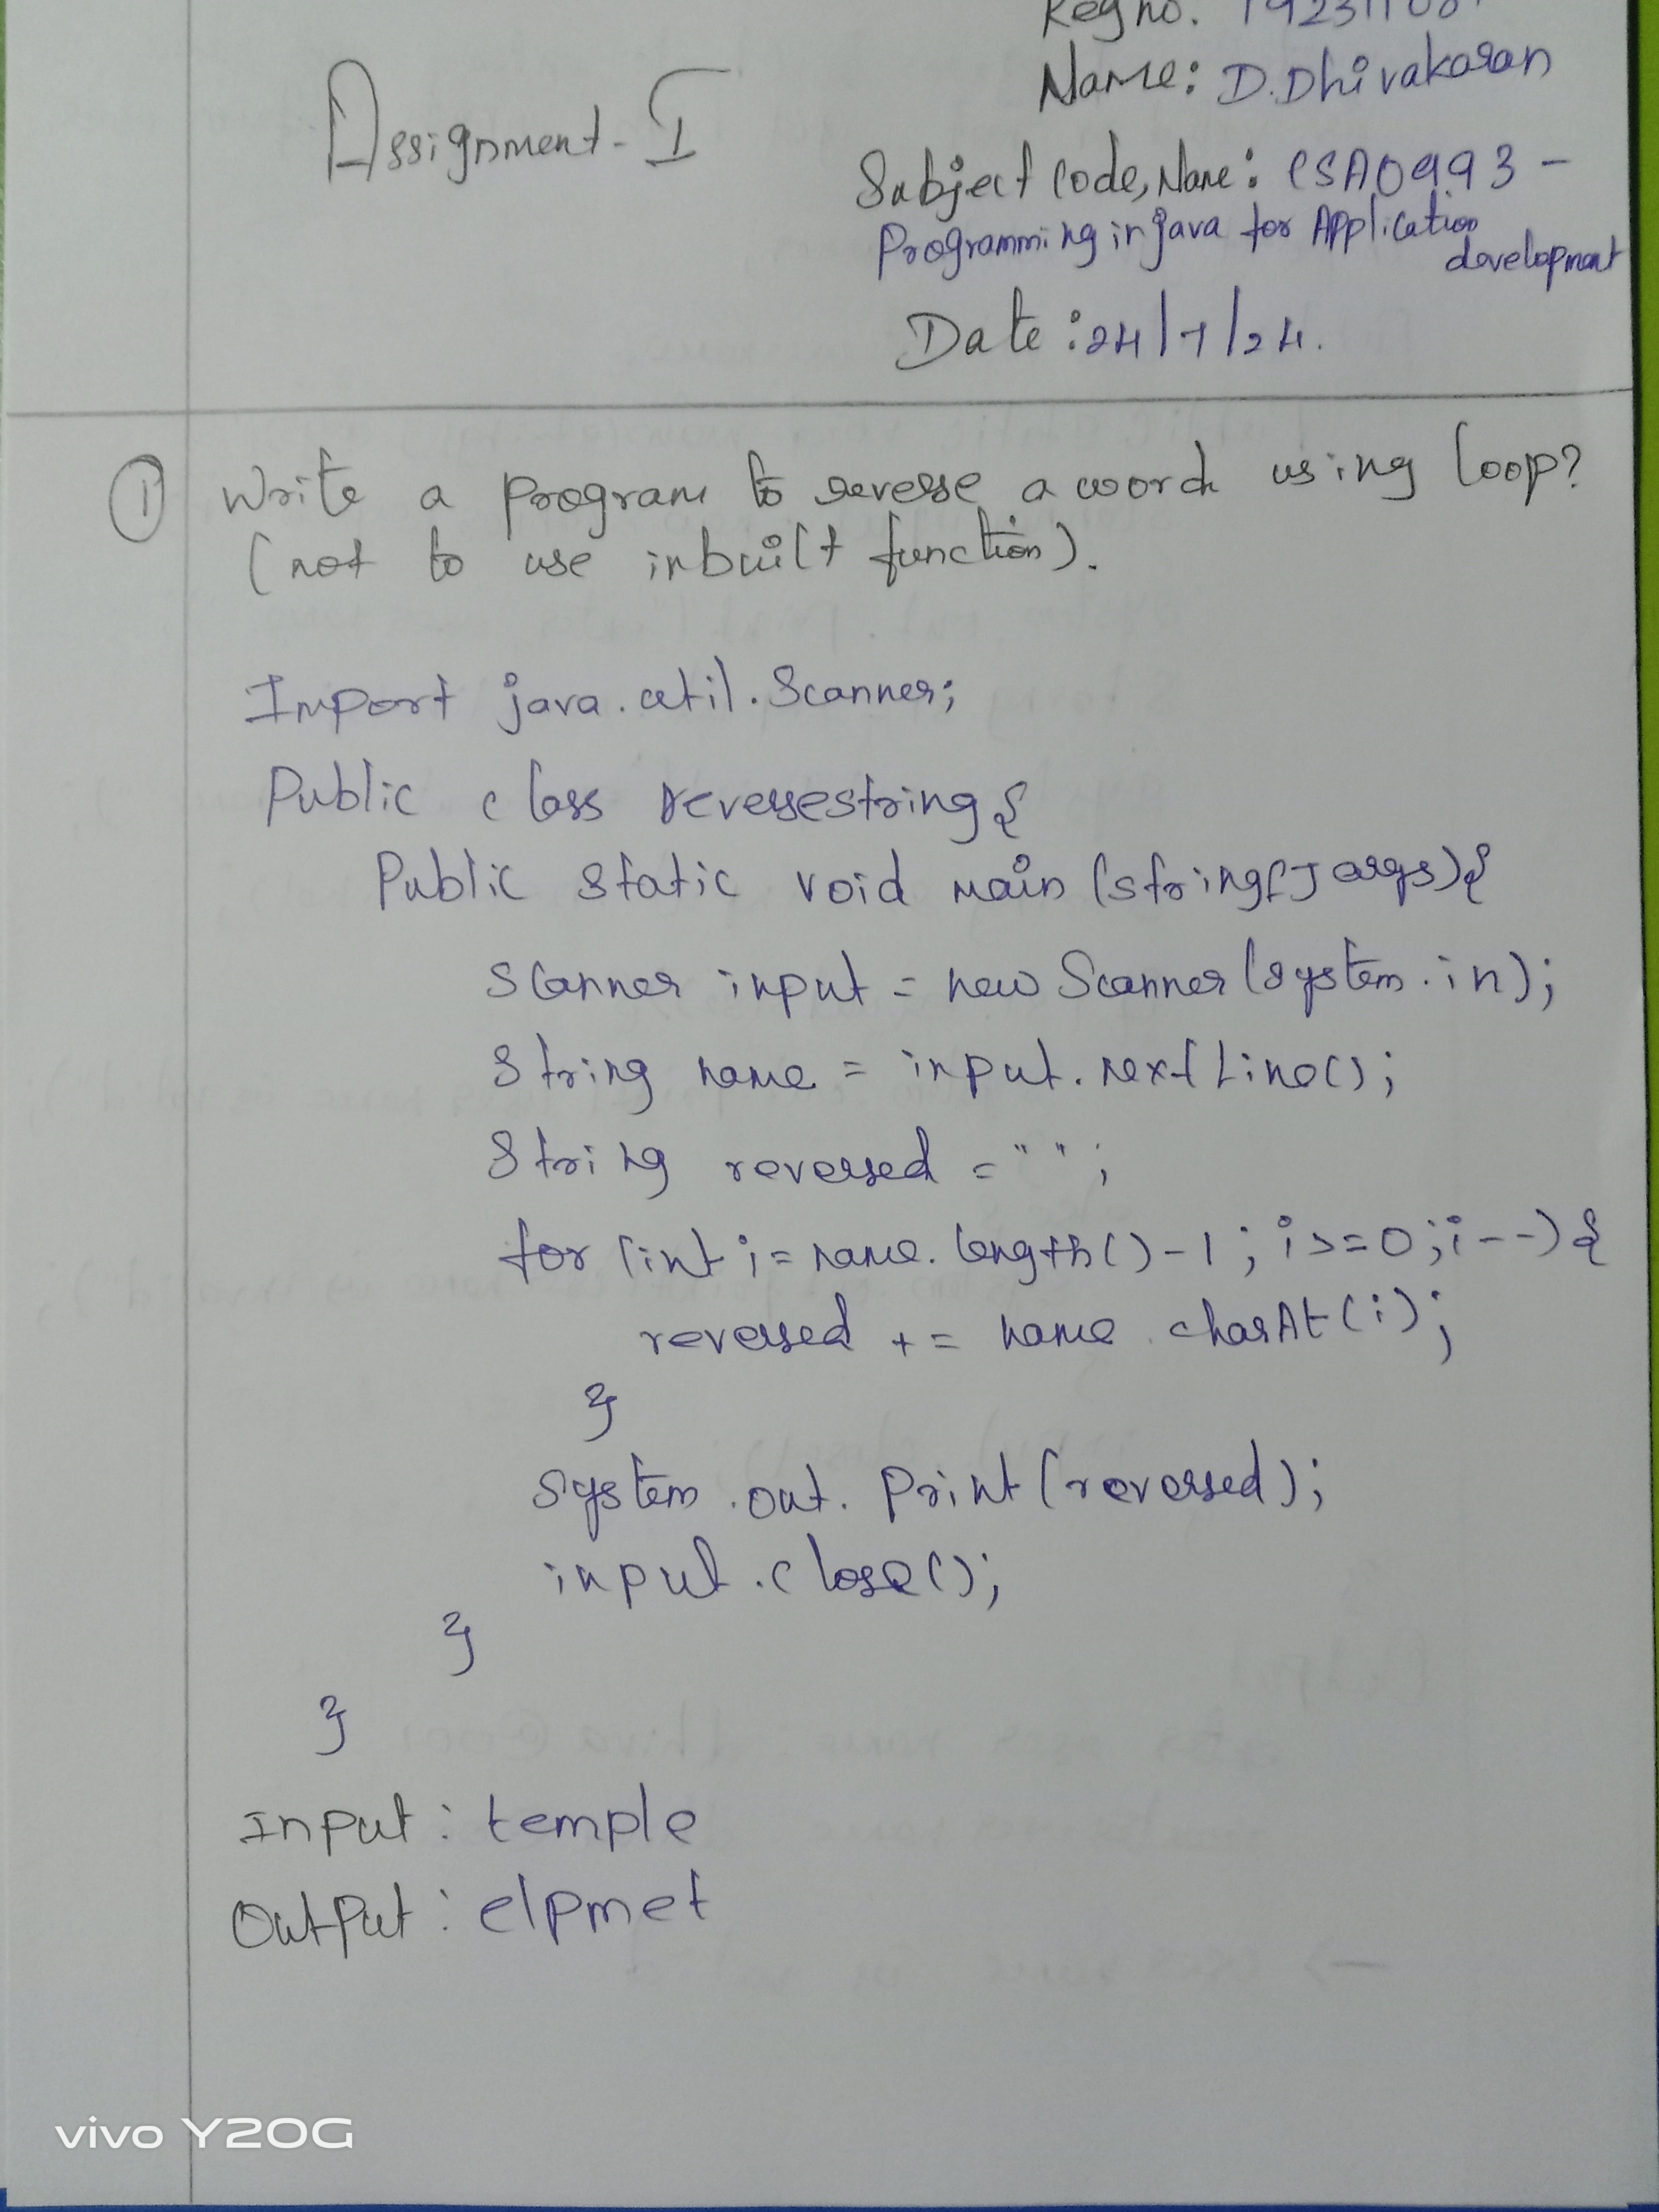 Reg no.
Name: D.Dhivakaran
Assignment-I
Subject Code, Name: CSA0993 -
Programming in java for Application
development
Date: 24/7/24.
1 Write a program to reverse a word using loop?
(not to use inbuilt function).
Import java.util.Scanner;
Public class reversestring{
Public static void main (string[] args){
Scanner input = new Scanner(system.in);
String name = input.nextLine();
String reversed = "";
for (int i = name.length()-1; i>=0; i--){
reversed += name.charAt(i);
}
System.out.Print(reversed);
input.close();
}
}
Input: temple
Output: elpmet
vivo Y20G